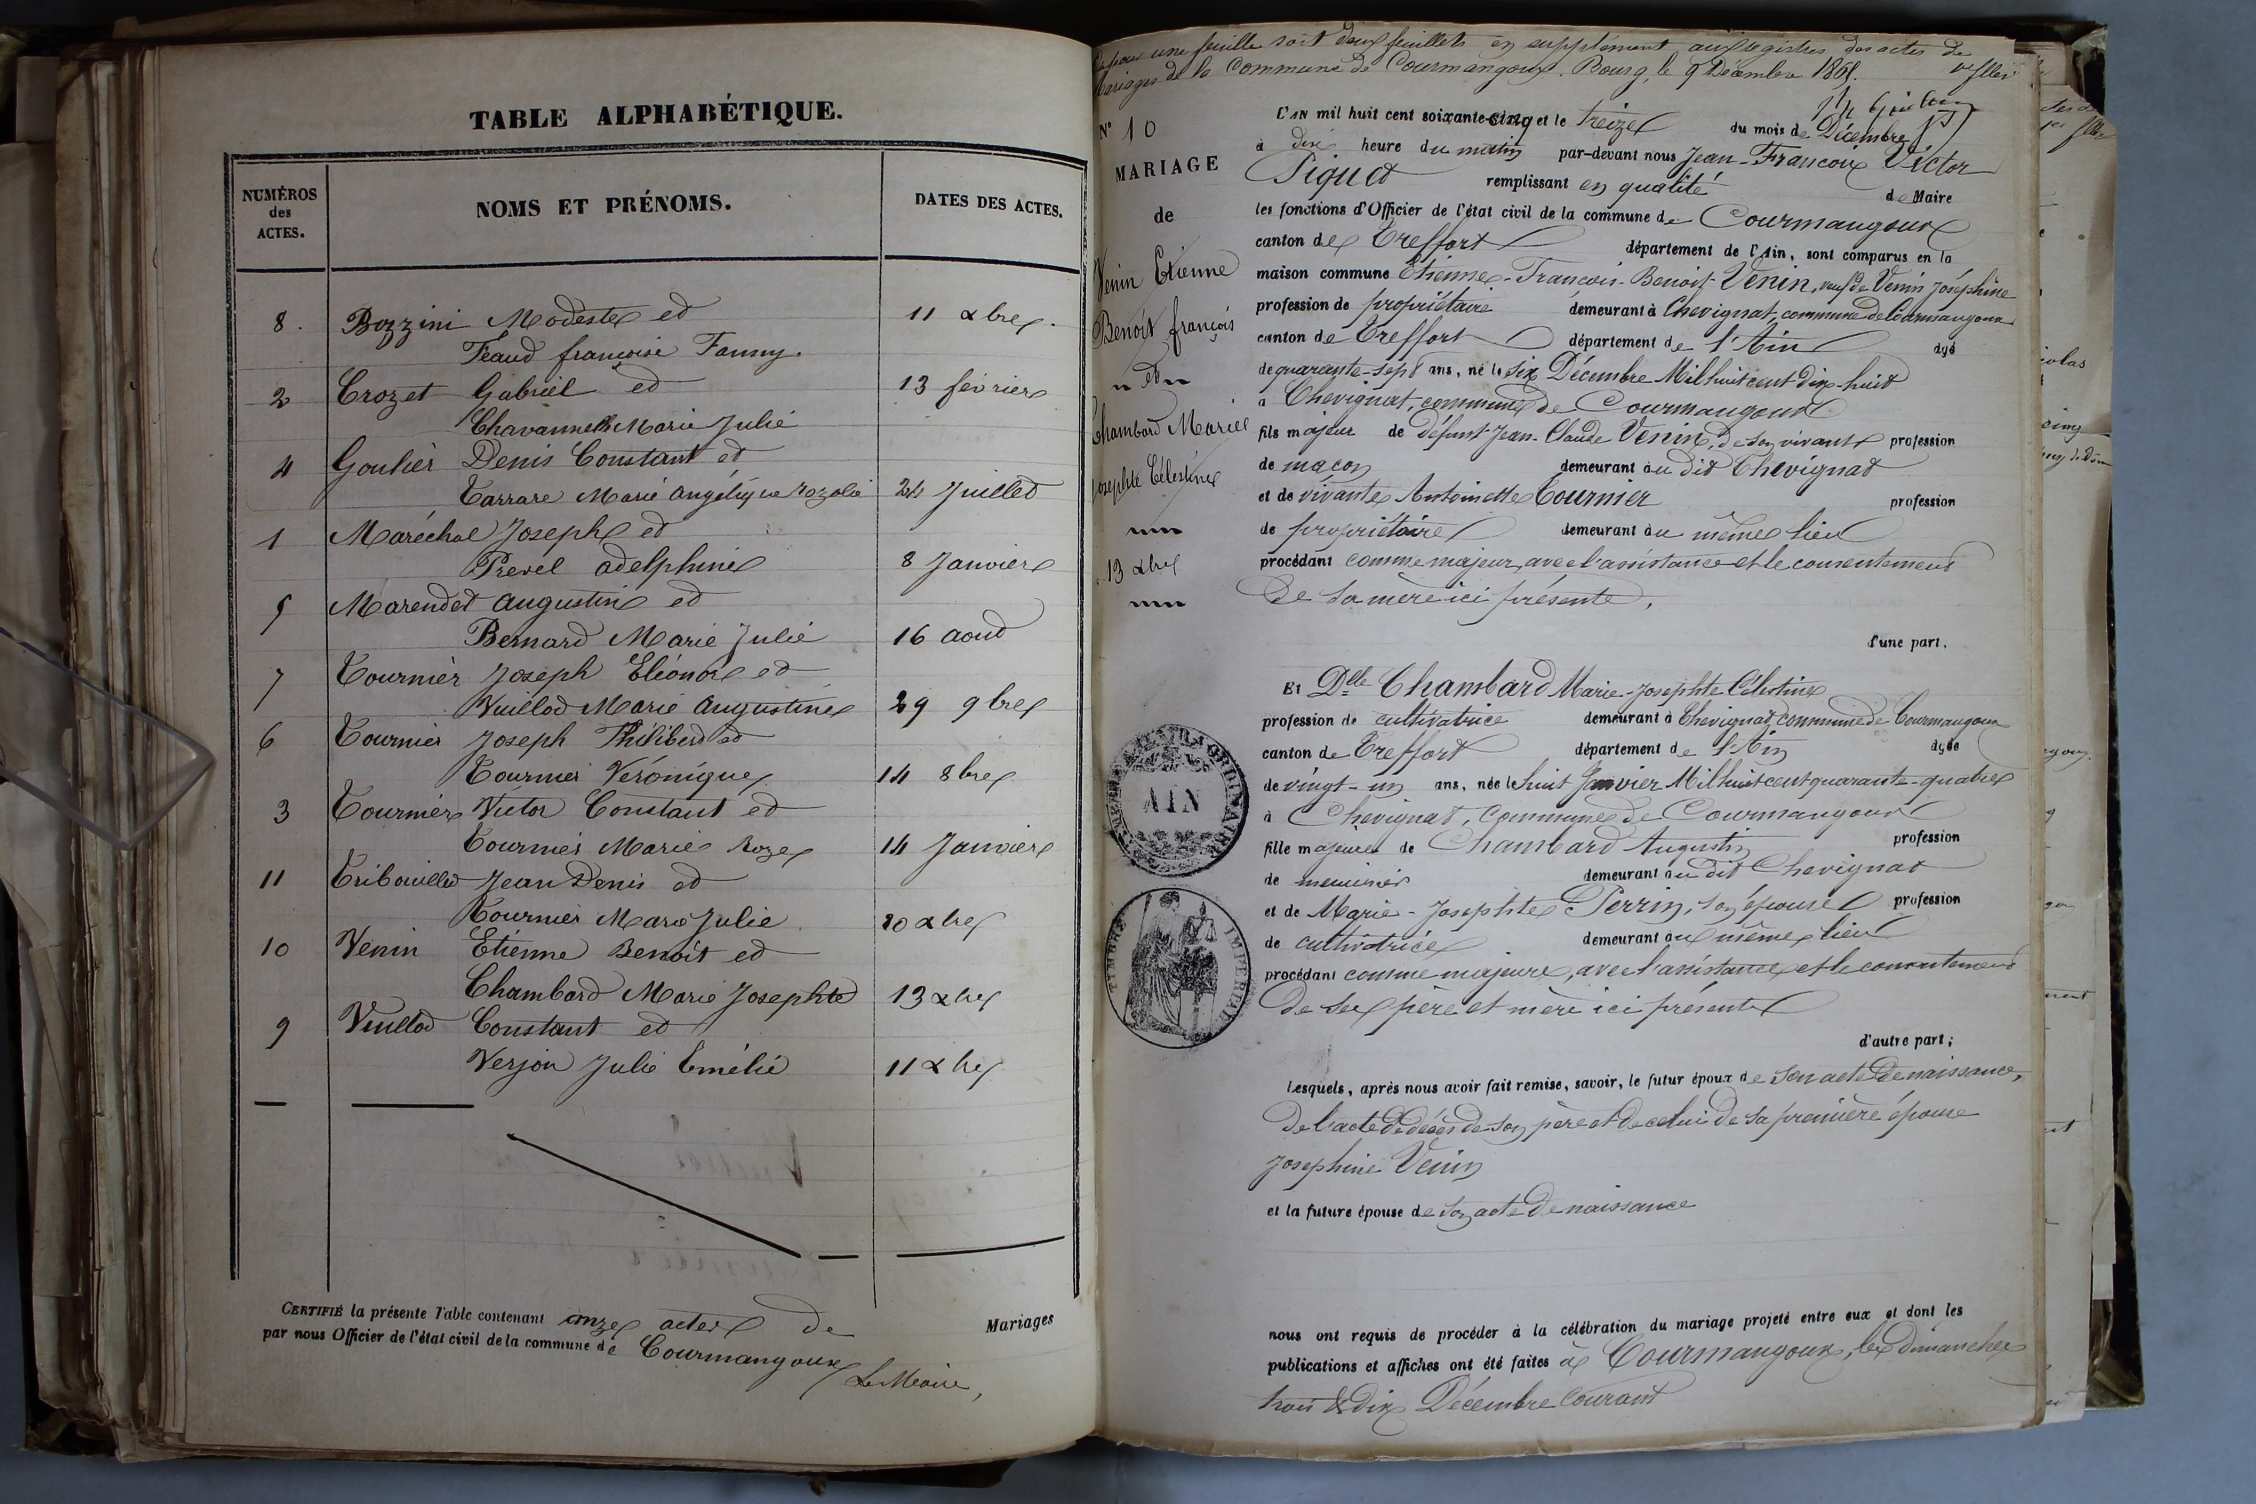 TABLE ALPHABÉTIQUE.
NUMÉROS des ACTES.
NOMS ET PRÉNOMS.
DATES DES ACTES.
8. Bozzini Modeste et 11 xbre.
Feaud françoise Fanny.
2 Crozet Gabriel et 13 février
Chavannes Marie Julie
4 Goulier Denis Constant et
Carrare Marie angélique Rozalie 24 Juillet
1 Maréchal Joseph et
Prevel adelphine 8 Janvier
5 Marendet augustin et
Bernard Marie Julie 16 aout
7 Tournier Joseph Eléonor et
Vuillod Marie augustine 29 9bre
6 Tournier Joseph Philibert et
Tournier Véronique 14 8bre
3 Tournier Victor Constant et
Tournier Marie Roze 14 Janvier
11 Tribouillet Jean Denis et
Tournier Marie Julie 20 xbre
10 Venin Etienne Benoit et
Chambard Marie Josephte 13 xbre
9 Vuillod Constant et
Verjon Julie Emélie 11 xbre
CERTIFIÉ la présente Table contenant onze actes de Mariages
par nous Officier de l'état civil de la commune de Courmangoux
Le Maire,
une feuille soit deux feuillets en supplément aux registres des actes de
Mariages de la Commune de Courmangoux. Bourg, le 9 Décembre 1865.
N° 10
MARIAGE
de
Venin Etienne
Benoit françois
et
Chambard Marie
Josephte Célestine
13 xbre
L'AN mil huit cent soixante-cinq et le treize du mois de Décembre
à dix heure du matin par-devant nous Jean-François Victor
Piquet remplissant en qualité de Maire
les fonctions d'Officier de l'état civil de la commune de Courmangoux
canton de Treffort département de l'Ain, sont comparus en la
maison commune Etienne-François-Benoit Venin, veuf de Venin Joséphine
profession de propriétaire demeurant à Chevignat, commune de Courmangoux
canton de Treffort département de l'Ain âgé
de quarante-sept ans, né le six Décembre Mil huit cent dix-huit
à Chevignat, commune de Courmangoux
fils majeur de défunt Jean-Claude Venin, de son vivant profession
de maçon demeurant au dit Chevignat
et de vivante Antoinette Tournier profession
de propriétaire demeurant au même lieu
procédant comme majeur, avec l'assistance et le consentement
de sa mère ici présente,
d'une part.
Et Dlle Chambard Marie-Josephte Célestine
profession de cultivatrice demeurant à Chevignat, commune de Courmangoux
canton de Treffort département de l'Ain âgée
de vingt-un ans, née le huit Janvier Mil huit cent quarante-quatre
à Chevignat, Commune de Courmangoux
fille majeure de Chambard Augustin profession
de menuisier demeurant au dit Chevignat
et de Marie-Josephte Perrin, son épouse profession
de cultivatrice demeurant au même lieu
procédant comme majeure, avec l'assistance et le consentement
de ses père et mère ici présents
d'autre part;
AIN
TIMBRE IMPERIAL
Lesquels, après nous avoir fait remise, savoir, le futur époux de son acte de naissance,
de l'acte de décès de son père et de celui de sa première épouse
Josephine Venin
et la future épouse de son acte de naissance
nous ont requis de procéder à la célébration du mariage projeté entre eux et dont les
publications et affiches ont été faites à Courmangoux, les dimanches
trois & dix Décembre Courant